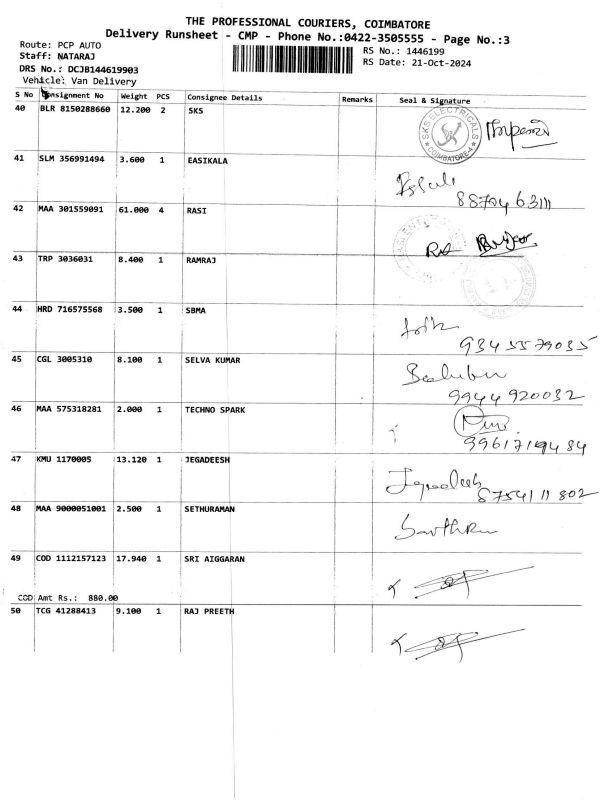 THE PROFESSIONAL COURIERS, COIMBATORE
Delivery Runsheet - CMP - Phone No.:0422-3505555 - Page No.:3
Route: PCP AUTO
Staff: NATARAJ
DRS No.: DCJB144619903
Vehicle: Van Delivery
RS No.: 1446199
RS Date: 21-Oct-2024
S No Consignment No Weight PCS Consignee Details Remarks Seal & Signature
40 BLR 8150288660 12.200 2 SKS
SKS ELECTRICALS
COIMBATORE-4
41 SLM 356991494 3.600 1 EASIKALA
42 MAA 301559091 61.000 4 RASI
43 TRP 3036031 8.400 1 RAMRAJ
44 HRD 716575568 3.500 1 SBMA
9345579035
45 CGL 3005310 8.100 1 SELVA KUMAR
9944920032
46 MAA 575318281 2.000 1 TECHNO SPARK
9961719484
47 KMU 1170005 13.120 1 JEGADEESH
Jegadeesh
8754111802
48 MAA 9000051001 2.500 1 SETHURAMAN
49 COD 1112157123 17.940 1 SRI AIGGARAN
COD Amt Rs.: 880.00
50 TCG 41288413 9.100 1 RAJ PREETH